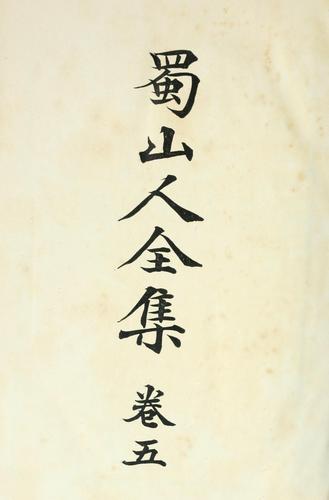 蜀山人全集 卷五